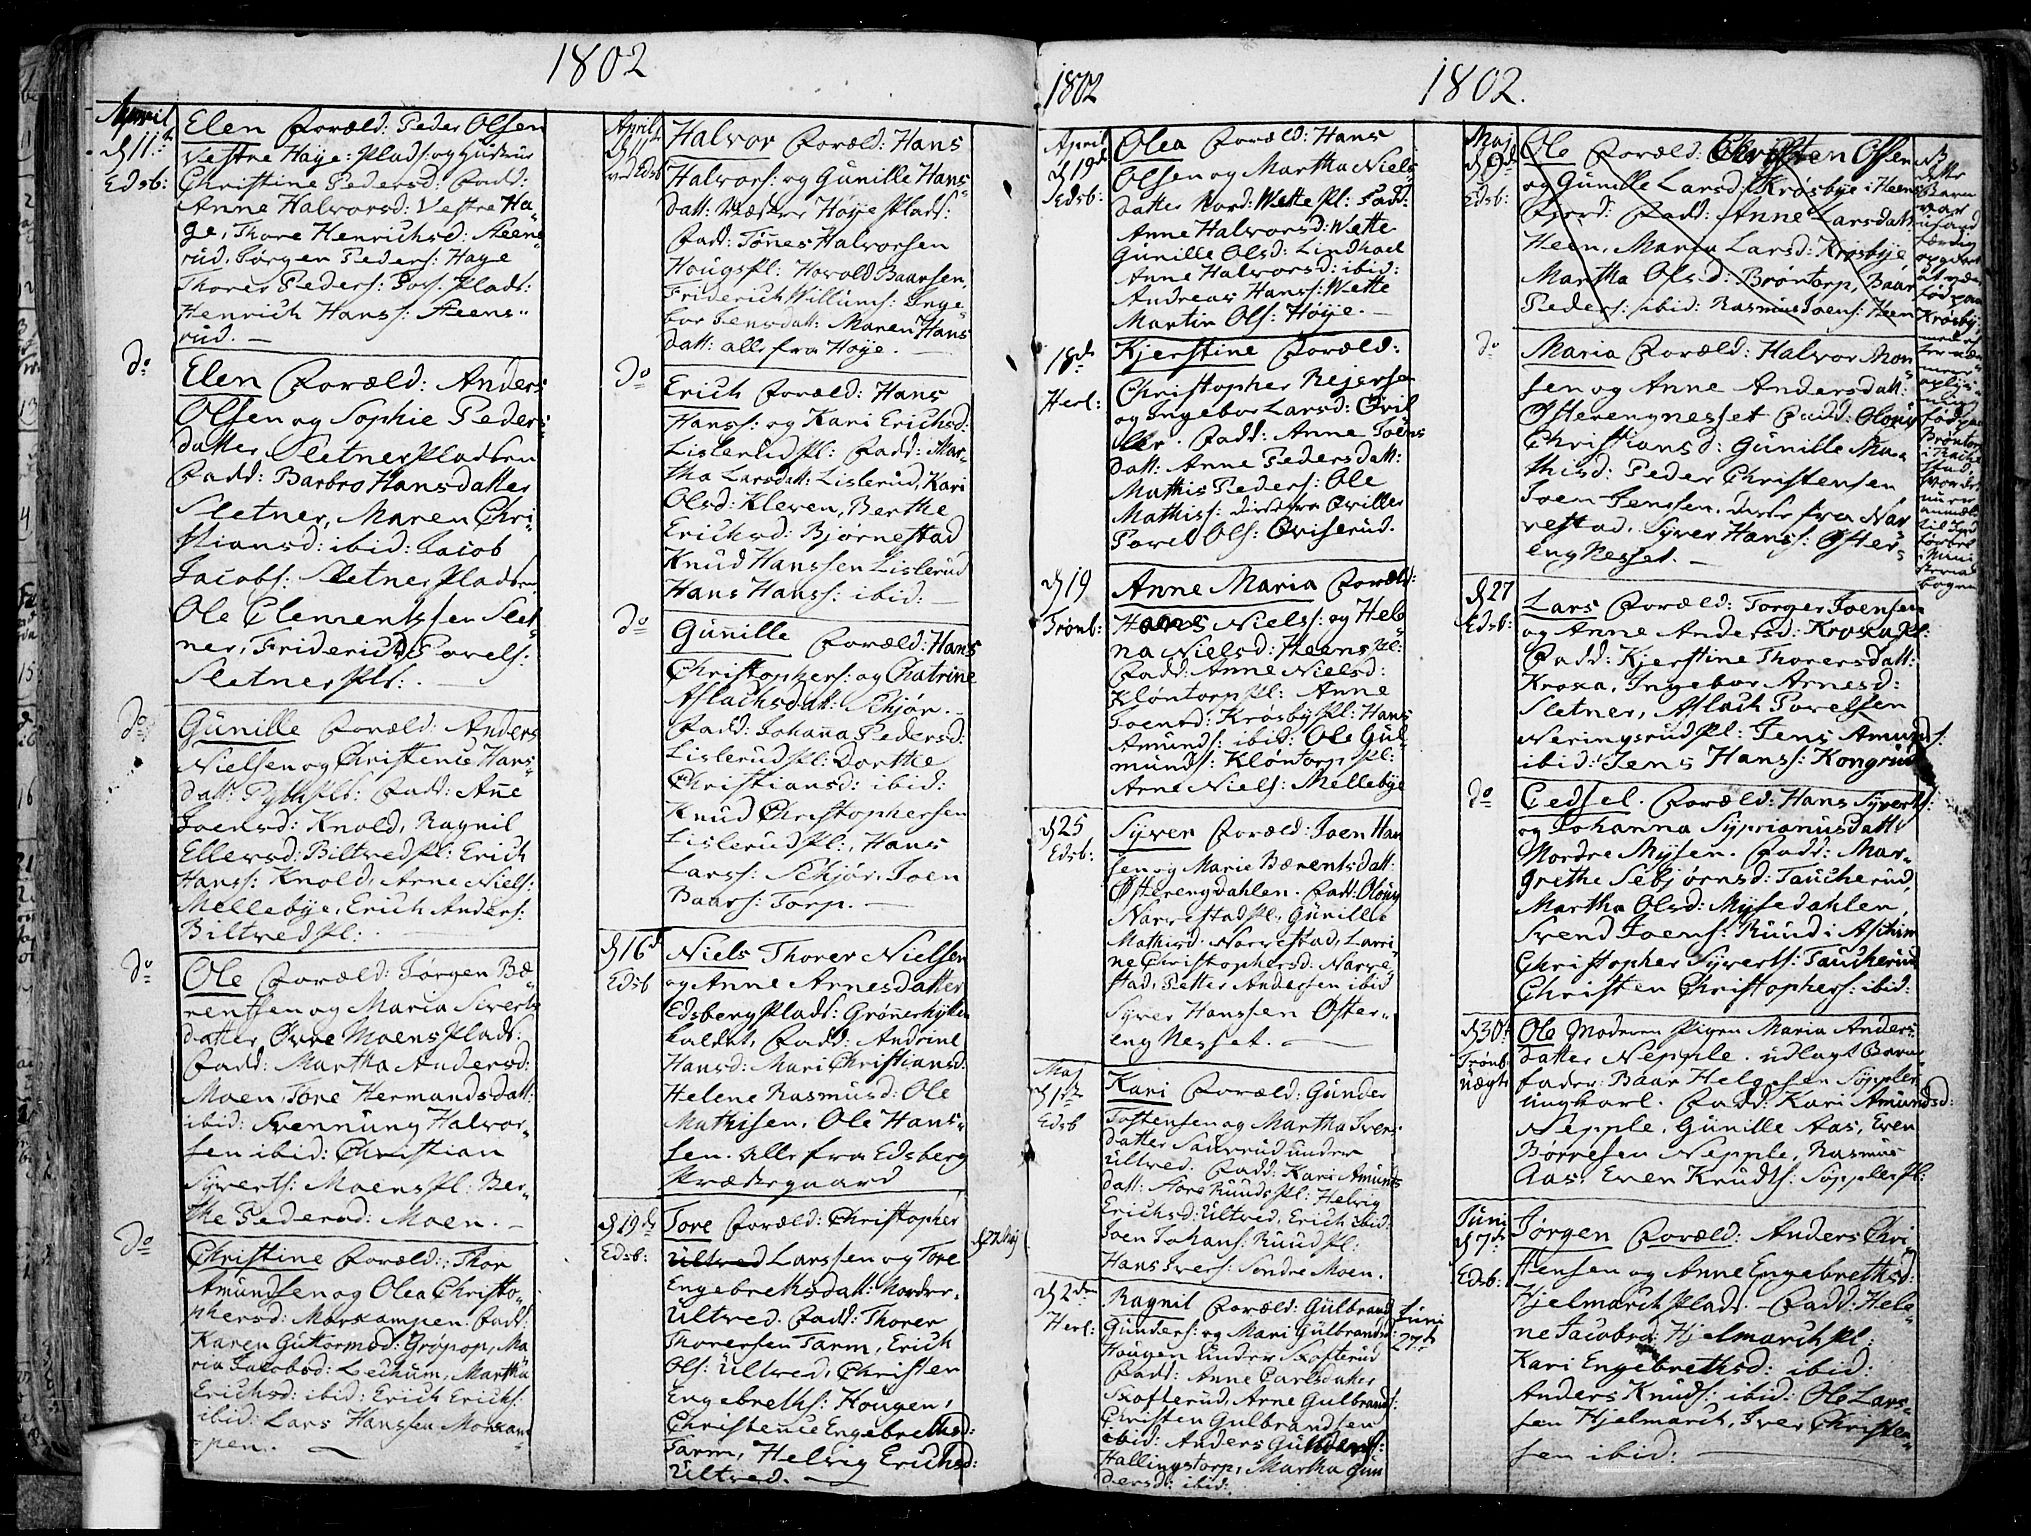 1802
April
d 11te
Edsb:
Elen Foræld: Peder Olsen
Vestre Høye: Plads: og Hustrue
Christine Pedersd: Fadd:
Anne Halvorsd: Vestre Hø-
ge, Thore Henrichsd: Steens-
rud, Jørgen Peders: Høye
Thorer Peders: Plads:
Henrich Hans: Steens-
rud. —
do
Elen Foræld: Anders
Olsen og Sophie Peders-
datter, Sletner Pladsen
Fadd: Barbro Hansdatter
Sletner, Maren Chri-
stiansd: ibid: Jacob
Jacobs: Sletner Pladsen
Ole Clementssen Slet-
ner, Friderich Povels:
Sletner Pls: —
do
Gunille Foræld: Anders
Nielsen og Christence Hans-
datt: Fadd: Anne
Joensd: Knold, Ragnil
Ellersd: Biltvedpl: Erich
Hans: Knold, Arne Niels:
Mellebye, Erich Anders:
Biltvedpl: —
do
Ole Foræld: Jørgen Bæ-
rentsen og Maria Siverts-
datter, Øvre Moens Plads:
Fadd: Martha Andersd:
Moen, Tore Hermandsdatt:
ibid: Svennung Halvor-
sen ibid: Christian
Syverts: Moenspl: Ber-
the Pedersd: Moen. —
do
Christine Foræld: Thor
Amundsen og Olea Christo-
phersd: Morkampen. Fadd:
Karen Guttormsd: Grøpop, Ma-
ria Jacobsd: Lechum, Martha
Erichsd: ibid: Erich Erichs:
ibid: Lars Hanssen Morkam-
pen. —
April
d 11te
ved Edsb
Halvor Foræld: Hans
Halvors: og Gunille Hans-
datt: Høye Plads:
Fadd: Tønes Halvorsen
Hougspl: Havold Baarsen,
Friderich Willums: Inge-
bor Jensdatt: Maren Hans
datt: alle fra Høye. —
do
Erich Foræld: Hans
Hans: og Kari Erichsd:
Lislerudpl: Fadd: Mar-
tha Larsdatt: Lislerud, Kari
Olsd: Kleven, Berthe
Erichsd: Bjørnestad
Knud Hanssen Lislerud
Hans Hans: ibid: —
do
Gunille Foræld: Hans
Christophers: og Chatrine
Aslachsdatt: Schjør. —
Fadd: Johanna Pedersd:
Lislerudpl: Dorthe
Christiansd: ibid:
Knud Christophersen
Lislerudpl:, Hans
Lars: Schjør, Joen
Baars: Torp. —
d 16d
Edsb
Niels Thorer Nielsen
og Anne Arnesdatter
Edsberg Plads: Grønerhytten
kaldet, Fadd: Andrine
Hansd: Mari Christiansd:
Helene Rasmusd: Ole
Mathisen, Ole Hans-
sen. alle fra Edsberg
Præstegaard
d 19de
Edsb:
Tore Foræld: Christopher
Ultved Larssen og Tore
Engebrethsdatt: Nordre-
Ultved. Fadd: Thorer
Thorersen Tarm, Erich
Ols: Ultved, Christen
Engebreths: Hougen,
Christence Engebrethsd:
Tarm, Helvig Erichsd:
Ultved. —
d 27 Maj
1802
1802.
April
d 19de
Edsb:
Olea Foræld: Hans
Olsen og Martha Niels-
datter Nord: Wette Pl: Fadd:
Anne Halvorsd: Wette
Gunille Olsd: Lindhael
Anne Halvorsd: ibid:
Andreas Hans: Wette
Martin Ols: Høye. —
18de
Herl:
Kjerstine Foræld:
Christopher Rejersen
og Ingebor Larsd: Qvil
ler. Fadd: Anne Joens
datt: Anne Pedersdatt:
Mathis Peders: Ole
Mathis: disse fra Qviller
Povel Ols: Qviserud.
d 19
Trømb:
Anne Maria Foræld:
Hans Niels: og Hele-
na Nielsd: Heenspl:
Fadd: Anne Nielsd:
Kløntorp Pl: Anne
Joensd: Krøsbypl: Hans
Amunds: ibid: Ole Gul-
munds: Kløntorp Pl:
Arne Niels: Mellebye
d 25
Edsb:
Syver Foræld: Joen Han
sen og Marie Bærentsdatt:
Østerengdahlen. Fadd: Olong
Narvestad Pl, Gunille
Mathisd: Narvestad, Larri-
ne Christophersd: Narve-
stad, Petter Andersen ibid
Syver Hanssen Øster-
engnesset. —
Maj
d 1ste
Edsb
Kari Foræld: Gunder
Tostensen og Martha Ivers
datter Saururud under
Ultved. Fadd: Kari Amunds
datt: Store Ruudspl: Helvig
Erichsd: Ultved, Erich ibid:
Joen Johans: Ruudpl:
Hans Ivers: Søndre Moen.
d 2den
Herl:
Ragnil Foræld: Gulbrand
Gunders: og Mari Gulbrandsd:
Hougen under Skofterud
Fadd: Anne Carlsdatter
Skofterud, Arne Gulbrands:
Christen Gulbrandsen
ibid: Anders Gunders:
Hallingstorp, Martha Gun
dersd: ibid:
Juni
27de
Maj
d 9de
Edsb:
Ole Foræld: Christen Olsen
og Gunille Larsd: Krøsbye i Heens
Fjerd: Fadd: Anne Larsdatt
Heen, Maria Larsd: Krøsbye
Martha Olsd: Brøntorp, Baar
Peders: ibid: Rasmus Joens: Heen
NB
dette
Barn
var
fød paa
Krøsby
med
oplys-
ning
fød paa
Brøntorp
i Rakke
stad
hvor det
anmælt
til Ind
førsel
i Mini
sterial
bogen
do
Maria Foræld: Halvor Mon-
sen og Anne Andersdatt:
Østerengnesset Fadd: Olong
Christiansd: Gunille Ma-
thisd: Peder Christensen
Joen Jenssen, disse fra Nar-
vestad, Syver Hans: Øster-
engnesset. —
d 27
Edsb:
Lars Foræld: Torger Joensen
og Anne Andersd: Kroxapl:
Fadd: Kjerstine Thorersdatt:
Kroxa, Ingebor Arnesd:
Sletner, Aslach Povelsen
Neringsrudpl: Jens Amunds:
ibid: Jens Hans: Kongrud
do
Gedsel. Foræld: Hans Syverts:
og Johanna Syprianusdatt:
Nordre Mysen. Fadd: Mar-
grethe Sebjørnsd: Taucherud,
Martha Olsd: Mysedahlen,
Svend Joens: Ruud i Aschim
Christopher Syverts: Taucherud
Christen Christophers: ibid:
d 30te
Trømb:
uægte
Ole Moderen Pigen Maria Anders
datter Nepple. udlagt Barne
fader: Baar Helgesen Søppler
ungkarl. Fadd: Kari Amundsd:
Nepple, Gunille Aas, Even
Børresen Nepple, Rasmus
Aas, Even Knuds: Søpplerpl:
Juni
d 7de
Edsb:
Jørgen Foræld: Anders Chri-
stensen og Anne Engebrethsd:
Hjelmarck Plads — Fadd: Hele-
ne Jacobsd: Hjelmarckpl:
Kari Engebrethsd: ibid:
Anders Knuds: ibid: Ole Lars-
sen Hjelmarck, Iver Christen-
sen ibid: —